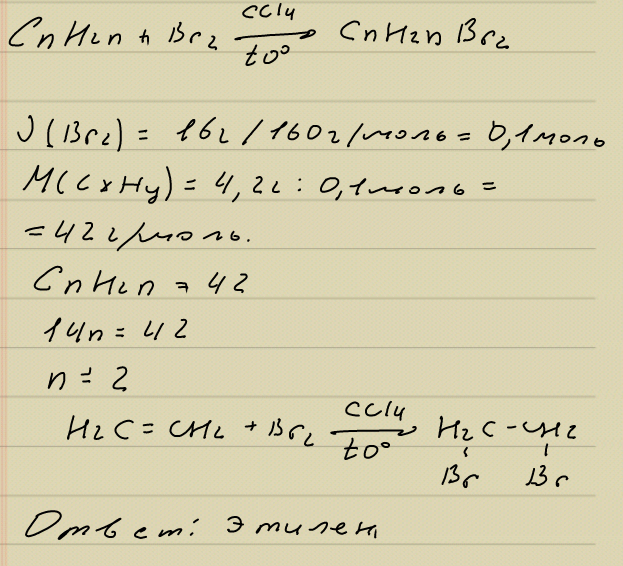 CnH2n + Br2 CCl4 t0° → CnH2nBr2
ν(Br2) = 16г/160г/моль = 0,1моль
M(CxHy) = 4,2г : 0,1моль =
= 42г/моль.
CnH2n = 42
14n = 42
n = 2
H2C = CH2 + Br2 CCl4 t0° → H2C - CH2
Br Br
Ответ: этилен